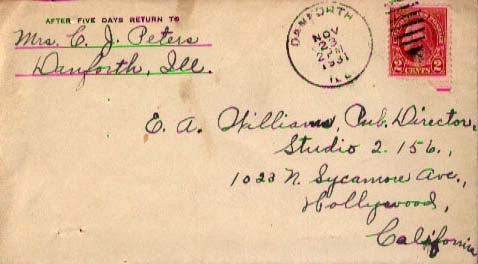 AFTER FIVE DAYS RETURN TO
Mrs. C. J. Peters
Danforth, Ill.
DANFORTH
NOV
23
2 PM
1931
ILL.
2 CENTS 2
E. A. Williams, Pub. Director,
Studio 2.156.,
1023 N. Sycamore Ave.,
Hollywood,
California